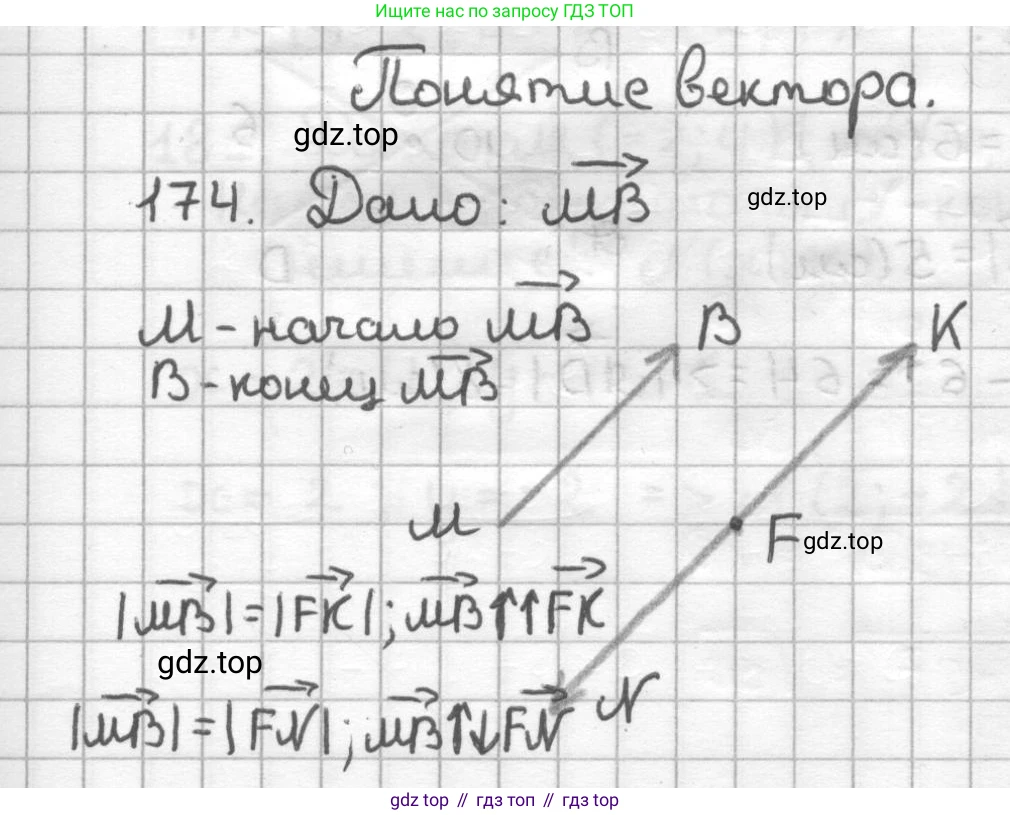 Ищите нас по запросу ГДЗ ТОП
Понятие вектора.
gdz.top
174. Дано: \overrightarrow{MB}
gdz.top
M - начало \overrightarrow{MB}
B - конец \overrightarrow{MB}
B
K
M
F
gdz.top
|\overrightarrow{MB}| = |\overrightarrow{FK}|; \overrightarrow{MB}↑↑\overrightarrow{FK}
gdz.top
N
|\overrightarrow{MB}| = |\overrightarrow{FN}|; \overrightarrow{MB}↑↓\overrightarrow{FN}
gdz top // гдз топ // gdz top